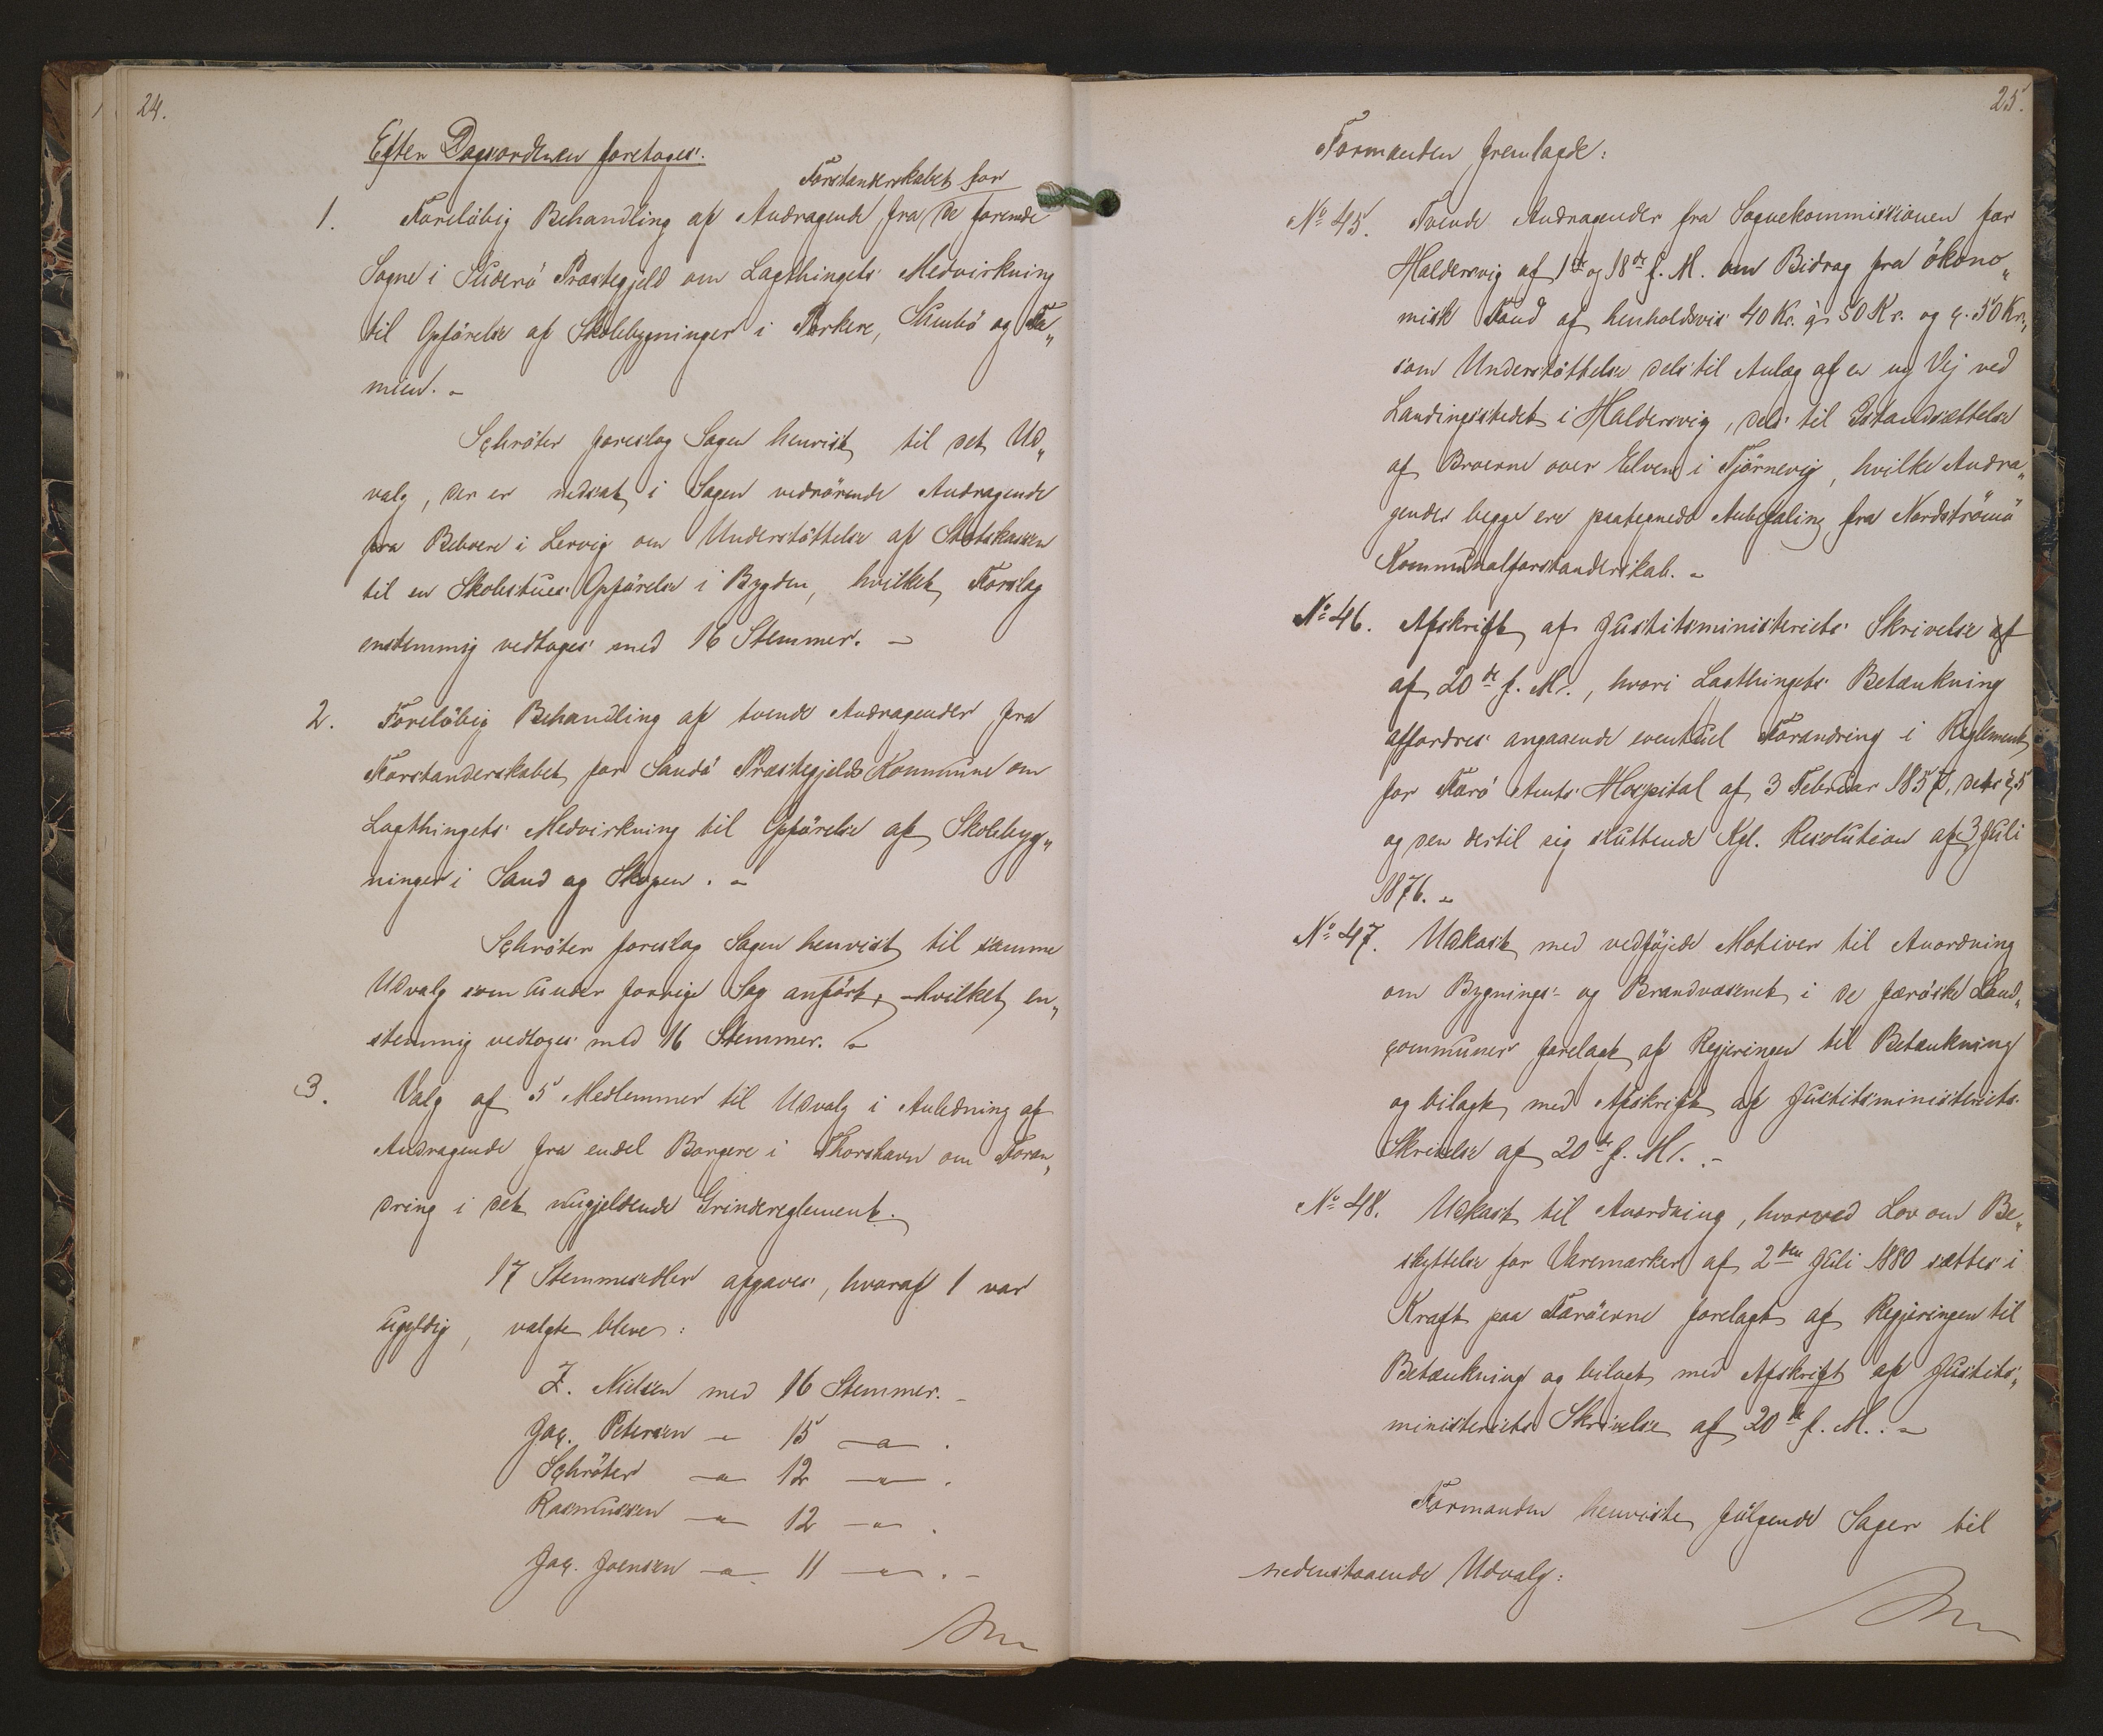 24.
Efter Dagsordenen foretoges:
Forstanderskabet for
1. Foreløbig Behandling af Andragende fra de forende
Sogne i Suderö Præstegjeld om Lagthingets Medvirkning
til Opførelse af Skolebygninger i Porkere, Sumbö og Fa„
mien. -
Schrøter foreslog Sagen henvist til det Ud„
valg, der er nedsat i Sagen vedrørende Andragende
fra Beboere i Lervig om Understøttelse af Statskassen
til en Skolestues Opførelse i Bygden, hvilket Forslag
enstemmig vedtoges med 16 Stemmer. -
2. Foreløbig Behandling af tvende Andragender fra
Forstanderskabet for Sandö Præstegjelds Kommune om
Lagthingets Medvirkning til Opførelse af Skolebyg„
ninger i Sand og Skopen. -
Schrøter foreslog Sagen henvist til samme
Udvalg som under forrige Sag anført, hvilket en„
stemmig vedtoges med 16 Stemmer. -
3. Valg af 5 Medlemmer til Udvalg i Anledning af
Andragende fra endel Borgere i Thorshavn om Foran„
dring i det nugjeldende Grindereglement.
17 Stemmesedler afgaves, hvoraf 1 var
ugyldig, valgte bleve:
Z. Nielsen med 16 Stemmer. -
Jac. Petersen - 15 - .
Schrøter - 12 - .
Rasmussen - 12 - .
Jac. Joensen - 11 - . -
25.
Formanden fremlagde:
No 45. Tvende Andragender fra Sognekommissionen for
Haldersvig af 1ste og 18de f. M. om Bidrag fra økono„
misk Fond af henholdsvis 40 Kr. à 50 Kr. og c. 50 Kr.,
som Understøttelse dels til Anlæg af en ny Vej ved
Landingsstedet i Haldersvig, dels til Istandsættelse
af Broerne over Elven i Tjørnevig, hvilke Andra„
gender begge ere paategnede Anbefaling fra Nordströmö
Kommunalforstanderskab. -
No 46. Afskrift af Justitsministeriets Skrivelse af
af 20de f. M., hvori Lagthingets Betænkning
affordres angaaende eventuel Forandring i Reglement
for Færö Amts Hospital af 3 Februar 1857, dets § 5
og den dertil sig sluttende Kgl. Resolution af 3 Juli
1876. -
No 47. Udkast med vedføjede Motiver til Anordning
om Bygnings- og Brandvæsenet i de færøske Land„
communer forelagt af Regjeringen til Betænkning
og bilagt med Afskrift af Justitsministeriets
Skrivelse af 20de f. M. . -
No 48. Udkast til Anordning, hvorved Lov om Be„
skyttelse for Varemærker af 2den Juli 1880 sættes i
Kraft paa Færöerne forelagt af Regjeringen til
Betænkning og bilagt med Afskrift af Justits„
ministeriets Skrivelse af 20de f. M. . -
Formanden henviste følgende Sager til
nedenstaaende Udvalg: